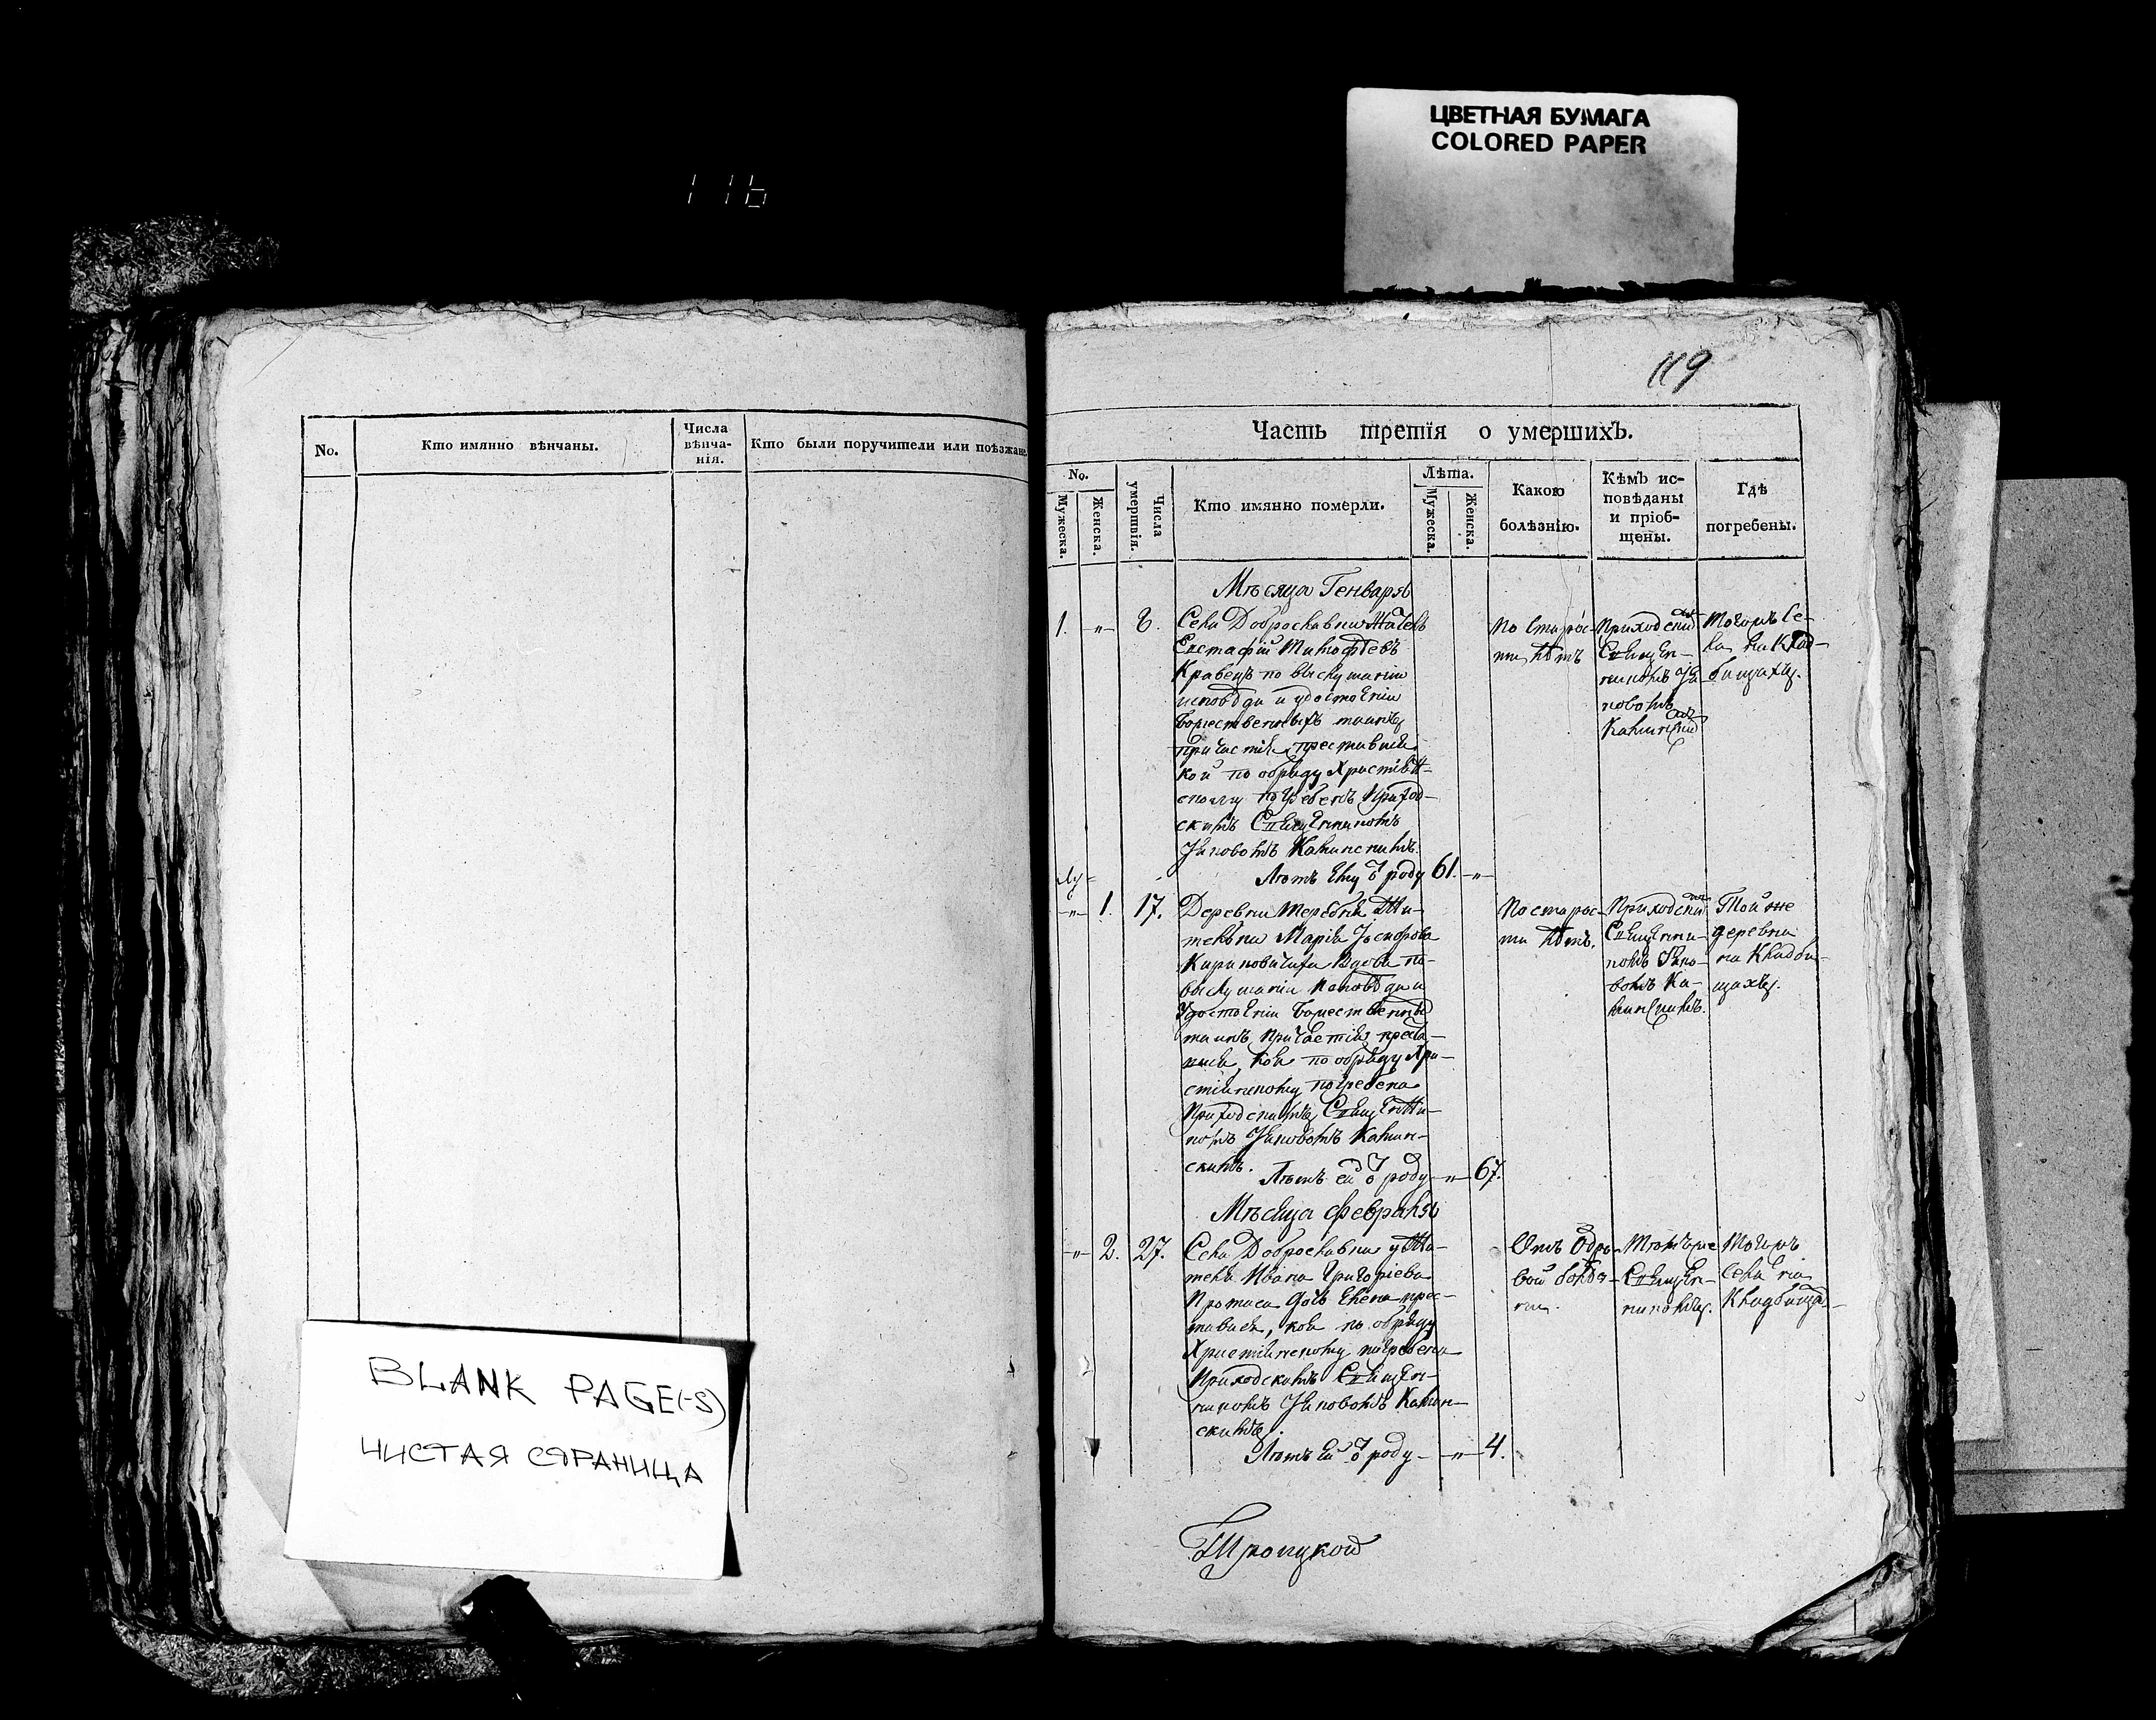 ЦВЕТНАЯ БУМАГА
COLORED PAPER
116
No.
Кто имянно вѣнчаны.
Числа
вѣнча-
нія.
Кто были поручители или поѣзжане
BLANK PAGE(-S)
ЧИСТАЯ СТРАНИЦА
119
Часть третія о умершихъ.
No.
Мужеска.
Женска.
Числа
умершвія.
Кто имянно померли.
Лѣта.
Мужеска.
Женска.
Какою
болѣзнію.
Кѣмъ ис-
повѣданы
и пріоб-
щены.
Гдѣ
погребены.
Мѣсяца Генваря
1. -"- 8.
Села Доброславки Жител
Евстафій Тимофѣевъ
Кравецъ по выслушаніи
исповѣди и удостоеніи
Божественныхъ таинъ
причастія преставися
кой по обряду Христіан-
скому погребенъ Приход-
скимъ Священникомъ
Яковомъ Каминскимъ.
Лѣтъ ему ѿ роду 61. -"-
По старос-
ти лѣтъ
Приходским
Священ-
никомъ Яковомъ
Каминским
Тогожъ Се-
ла на Клад-
бищахъ.
-"- 1. 17.
Деревни Теребня Жи-
телька Марія
Вдова по
выслушаніи Исповѣди и
Удостоеніи Божественныхъ
таинъ Причастія преста-
вися, коя по обряду Хри-
стіанскому погребена
Приходскимъ Священни-
комъ Яковомъ Камин-
скимъ.
Лѣтъ ей ѿ роду -"- 67.
По старос-
ти лѣтъ.
Приходским
Священни-
комъ Яко-
вомъ Ка-
минскимъ.
Той же
деревни
на Кладби-
щахъ.
Мѣсяца Февраля
-"- 2. 27.
Села Доброславки у Жи-
теля Ивана Григоріева
Протаса дочь Елена прес-
тавися, коя по обряду
Христіанскому погребена
Приходскимъ Священ-
никомъ Яковомъ Камин-
скимъ.
Лѣтъ ей ѿ роду -"- 4.
Отъ
вой болѣз-
ни.
Тѣмъ же
Священ-
никомъ.
Тогожъ
Села на
Кладбищахъ
Троицкой